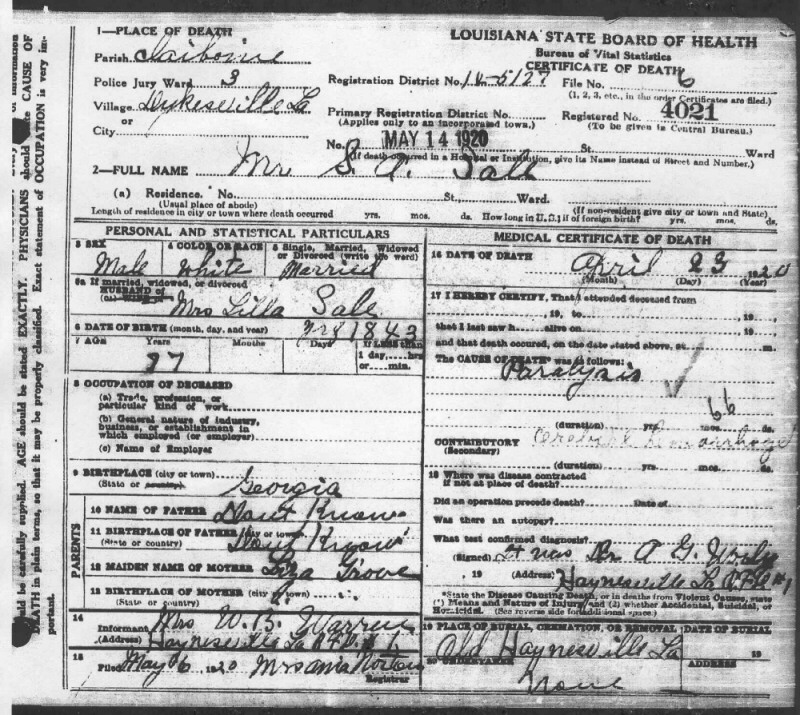 LOUISIANA STATE BOARD OF HEALTH
Bureau of Vital Statistics
CERTIFICATE OF DEATH
1—PLACE OF DEATH
Parish Claiborne
Police Jury Ward 3
Village Dykesville La
or
City
Registration District No. 14-5127
File No. 6
(1, 2, 3, etc., in the order Certificates are filed.)
Primary Registration District No.
(Applies only to an incorporated town.)
Registered No. 4021
(To be given in Central Bureau.)
No. MAY 14 1920 St., Ward
(If death occurred in a Hospital or Institution, give its Name instead of Street and Number.)
2—FULL NAME Mr S. A. Sale
(a) Residence. No. St., Ward.
(Usual place of abode) (If non-resident give city or town and State)
Length of residence in city or town where death occurred yrs. mos. ds. How long in U. S. if of foreign birth? yrs. mos. ds.
PERSONAL AND STATISTICAL PARTICULARS
3 SEX
Male
4 COLOR OR RACE
White
5 Single, Married, Widowed
or Divorced (write the word)
Married
5a If married, widowed, or divorced
HUSBAND of
(or) WIFE of
Mrs Lilla Sale
6 DATE OF BIRTH (month, day, and year) 1843
7 AGE Years Months Days If LESS than
1 day, hrs
or min.
77
8 OCCUPATION OF DECEASED
(a) Trade, profession, or
particular kind of work
(b) General nature of industry,
business, or establishment in
which employed (or employer)
(c) Name of Employer
9 BIRTHPLACE (city or town)
(State or country) Georgia
PARENTS
10 NAME OF FATHER Dont Know
11 BIRTHPLACE OF FATHER (city or town)
(State or country) Dont Know
12 MAIDEN NAME OF MOTHER Grove
13 BIRTHPLACE OF MOTHER (city or town)
(State or country)
14
Informant Mrs W. B. Warren
(Address) Haynesville La R.F.D. # 1
15
Filed May 6 1920 Mrs Norton
Registrar
MEDICAL CERTIFICATE OF DEATH
16 DATE OF DEATH April 23 1920
(Month) (Day) (Year)
17 I HEREBY CERTIFY, That I attended deceased from
, 19 , to , 19 ,
that I last saw h alive on , 19 ,
and that death occurred, on the date stated above, at m.
The CAUSE OF DEATH* was as follows:
Paralysis
66
(duration) yrs. mos. ds.
CONTRIBUTORY Cerebral hemorrhage
(Secondary)
(duration) yrs. mos. ds.
18 Where was disease contracted
if not at place of death?
Did an operation precede death? Date of
Was there an autopsy?
What test confirmed diagnosis?
(Signed) Dr A G
, 19 (Address) Haynesville La R F D #1
*State the Disease Causing Death, or in deaths from Violent Causes, state
(1) Means and Nature of Injury; and (2) whether Accidental, Suicidal, or
Homicidal. (See reverse side for additional space.)
19 PLACE OF BURIAL, CREMATION, OR REMOVAL DATE OF BURIAL
Old Haynesville La 19
20 UNDERTAKER ADDRESS
None
ould be carefully supplied. AGE should be stated EXACTLY. PHYSICIANS should state CAUSE OF
DEATH in plain terms, so that it may be properly classified. Exact statement of OCCUPATION is very im-
portant.